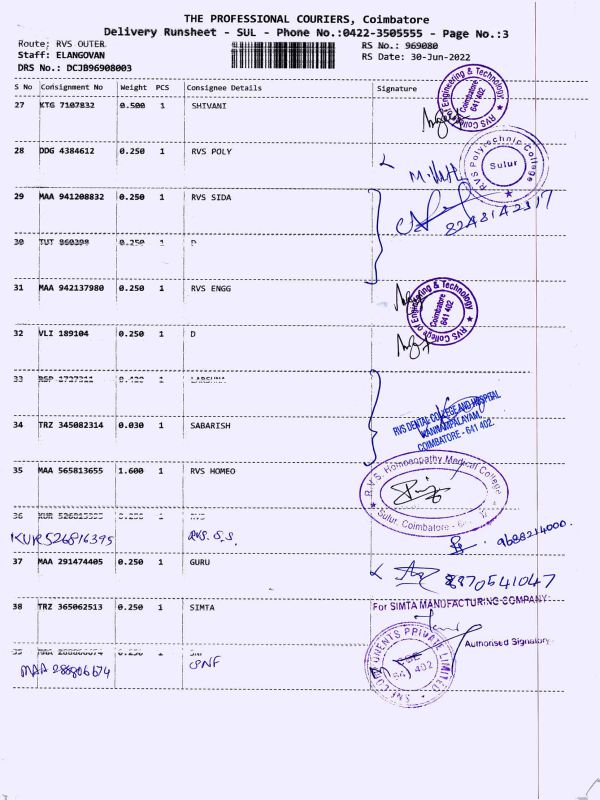 THE PROFESSIONAL COURIERS, Coimbatore
Delivery Runsheet - SUL - Phone No.:0422-3505555 - Page No.:3
Route: RVS OUTER
Staff: ELANGOVAN
DRS No.: DCJB96908003
RS No.: 969080
RS Date: 30-Jun-2022
S No Consignment No Weight PCS Consignee Details Signature
27 KTG 7107832 0.500 1 SHIVANI
RVS College of Engineering & Technology
Coimbatore
641 402
28 DDG 4384612 0.250 1 RVS POLY
RVS Polytechnic College
Sulur
29 MAA 941208832 0.250 1 RVS SIDA
30 TUT 860398 0.250 1 D
31 MAA 942137980 0.250 1 RVS ENGG
RVS College of Engineering & Technology
Coimbatore
641 402
32 VLI 189104 0.250 1 D
33
34 TRZ 345082314 0.030 1 SABARISH
RVS DENTAL COLLEGE AND HOSPITAL
COIMBATORE - 641 402.
35 MAA 565813655 1.600 1 RVS HOMEO
R.V.S. Homoeopathy Medical College
Sulur, Coimbatore -
36 0.250 1 RVS
KUR 526816395 RVS. S.S. 9688214000.
37 MAA 291474405 0.250 1 GURU
8870541047
38 TRZ 365062513 0.250 1 SIMTA
For SIMTA MANUFACTURING COMPANY
Authorised Signatory
39 0.250 1 SNF
MAA 288806674 SNF
SNF COMPONENTS PRIVATE LIMITED